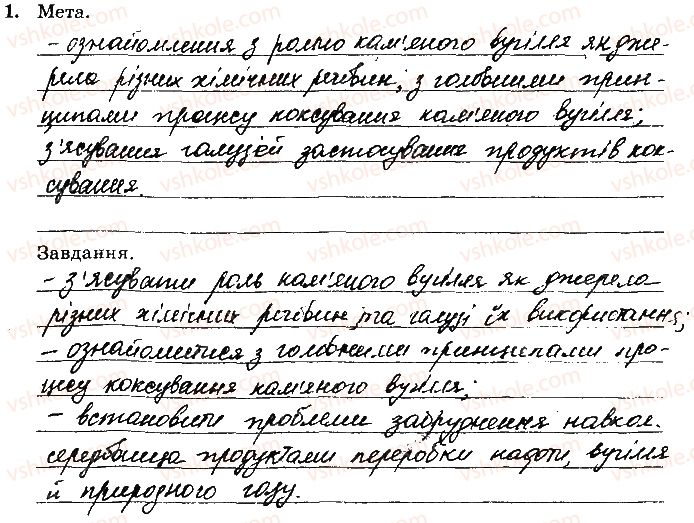 1. Мета.
- ознайомлення з роллю кам'яного вугілля як дже-
рела різних хімічних речовин; з головними прин-
ципами процесу коксування кам'яного вугілля;
з'ясування галузей застосування продуктів кок-
сування.
Завдання.
- з'ясувати роль кам'яного вугілля як джерела
різних хімічних речовин та галузі їх використання;
- ознайомитися з головними принципами про-
цесу коксування кам'яного вугілля;
- встановити проблеми забруднення навкол.
середовища продуктами переробки нафти, вугілля
й природного газу.